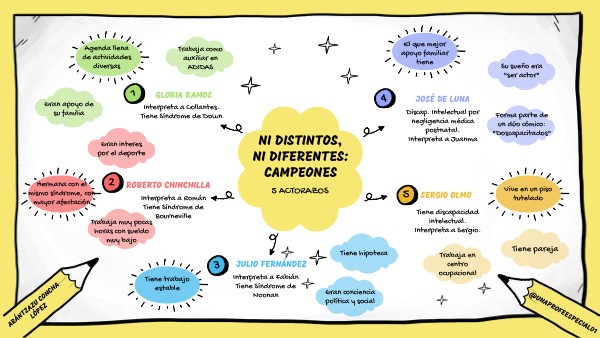 NI DISTINTOS,
NI DIFERENTES:
CAMPEONES
5 ACTORAZOS
Agenda llena
de actividades
diversas
Trabaja como
auxiliar en
ADIDAS
Gran apoyo de
su familia
1
GLORIA RAMOS
Interpreta a Collantes.
Tiene Síndrome de Down
Gran interes
por el deporte
Hermana con el
mismo síndrome, con
mayor afectación
2
ROBERTO CHINCHILLA
Interpreta a Román
Tiene Síndrome de
Bourneville
Trabaja muy pocas
horas con sueldo
muy bajo
3
JULIO FERNÁNDEZ
Interpreta a Fabián
Tiene Síndrome de
Noonan
Tiene trabajo
estable
Tiene hipoteca
Gran conciencia
política y social
El que mejor
apoyo familiar
tiene
Su sueño era
"ser actor"
4
JOSÉ DE LUNA
Discap. Intelectual por
negligencia médica
postnatal.
Interpreta a Juanma
Forma parte de
un dúo cómico:
"Doscapacitados"
5
SERGIO OLMO
Tiene discapacidad
intelectual.
Interpreta a Sergio.
Vive en un piso
tutelado
Trabaja en
centro
ocupacional
Tiene pareja
ARÁNTZAZU CONCHA
LÓPEZ
@UNAPROFEESPECIAL07